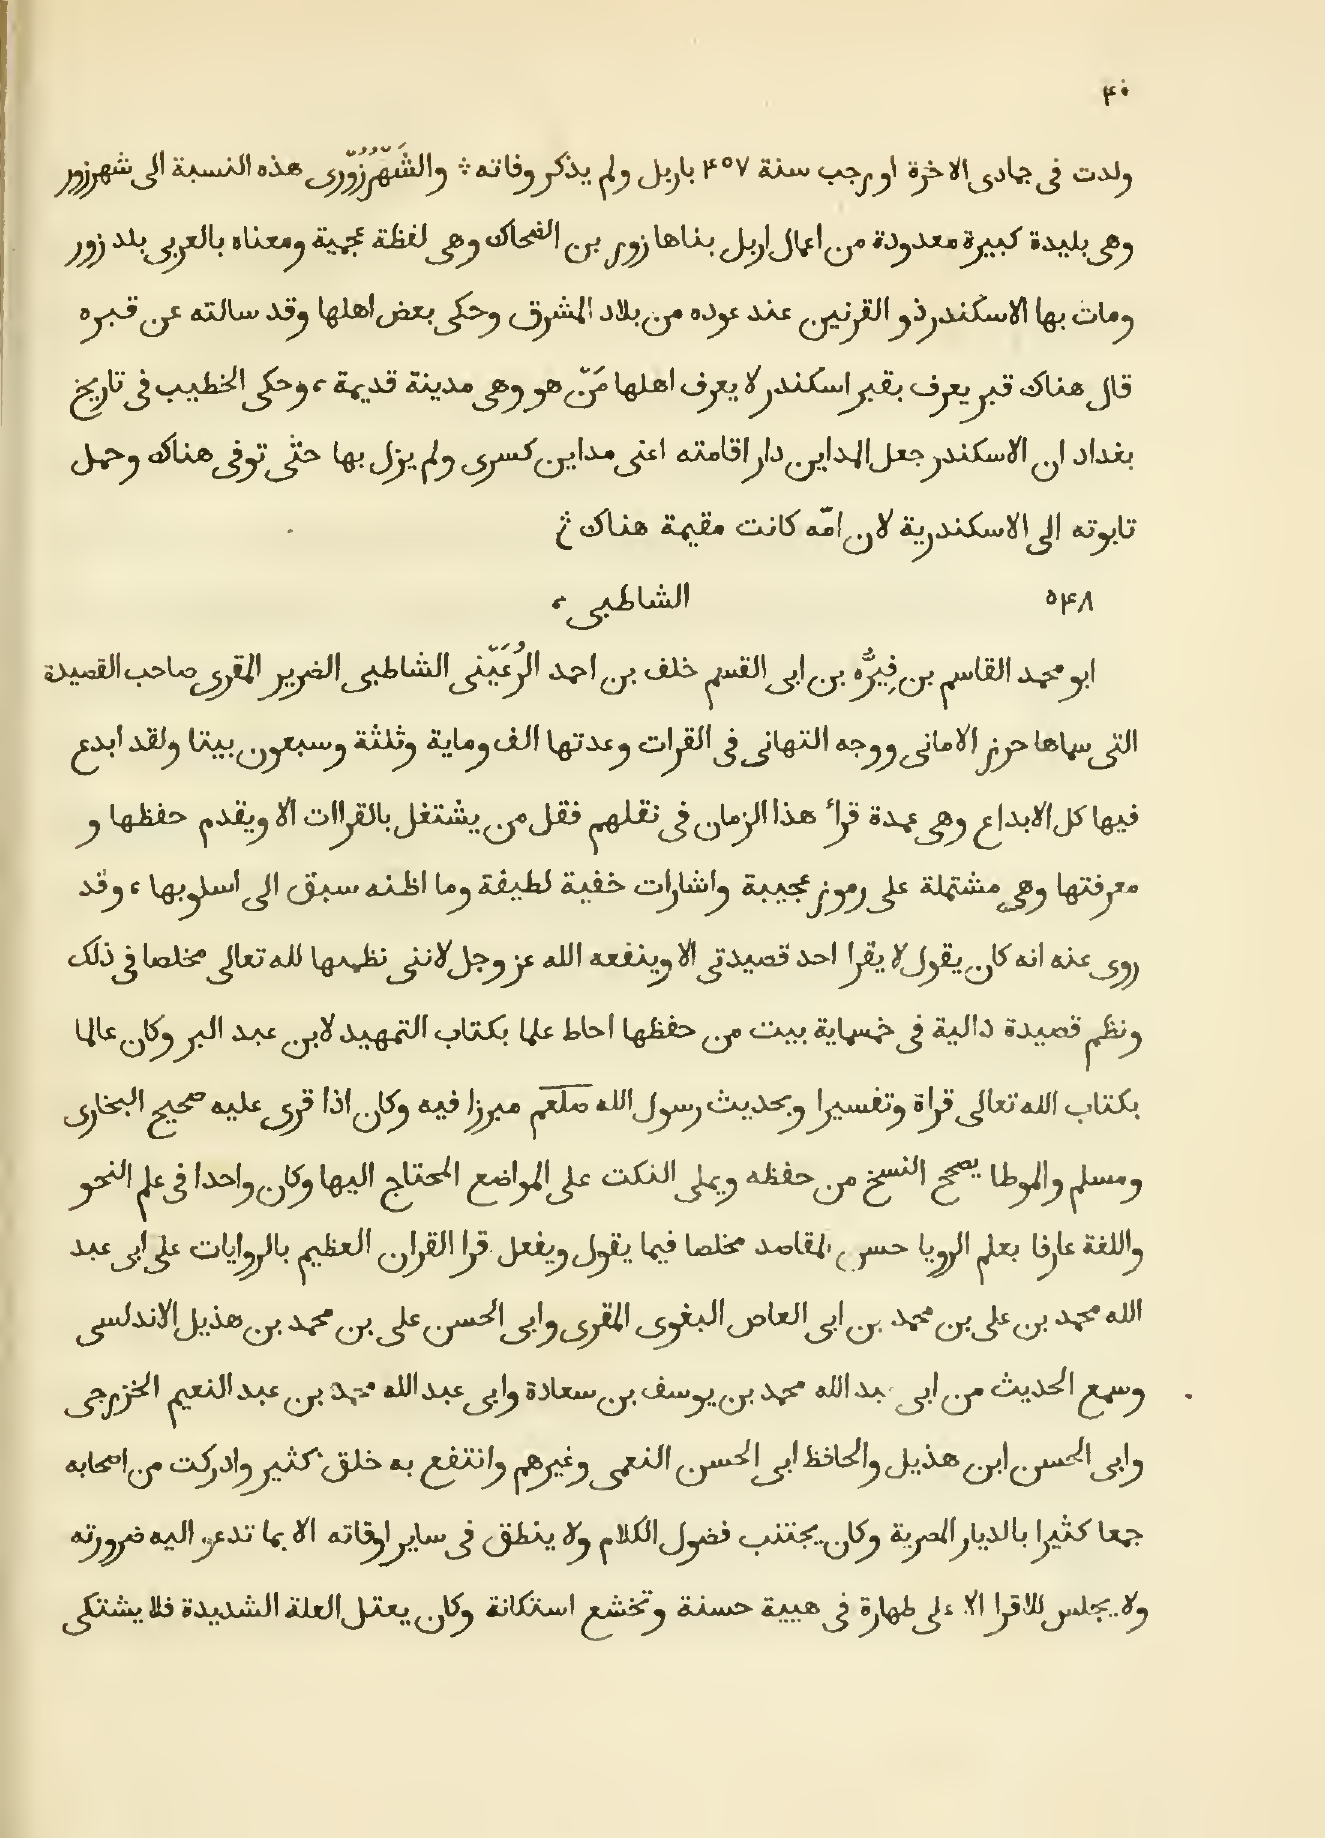 ۴۰
ولدت فى جمادى الاخرة او رجب سنة ۴۵۷ باربل ولم يذكر وفاته ؞ والشَّهْرُزُوْرى هذه النسبة الى شهرزور
وهى بليدة كبيرة معدودة من اعمال اربل بناها زور بن الضحاك وهى لفظة عجمية ومعناه بالعربى بلد زور
ومات بها الاسكندر ذو القرنين عند عوده من بلاد المشرق وحكى بعض اهلها وقد سالته عن قبره
قال هناك قبر يعرف بقبر اسكندر لا يعرف اهلها مَنْ هو وهى مدينة قديمة ، وحكى الخطيب فى تاريخ
بغداد ان الاسكندر جعل المداين دار اقامته اعنى مداين كسرى ولم يزل بها حتى توفى هناك وحمل
تابوته الى الاسكندرية لان امّه كانت مقيمة هناك ۞
۵۴۸ الشاطبى ،
ابو محمد القاسم بن فِيرُّه بن ابى القسم خلف بن احمد الرُعَيْنى الشاطبى الضرير المقرى صاحب القصيدة
التى سماها حرز الامانى ووجه التهانى فى القرات وعدتها الف وماية وثلثة وسبعون بيتا ولقد ابدع
فيها كل الابداع وهى عمدة قراء هذا الزمان فى نقلهم فقل من يشتغل بالقراات الا ويقدم حفظها و
معرفتها وهى مشتملة على رموز عجيبة واشارات خفية لطيفة وما اظنه سبق الى اسلوبها ، وقد
روى عنه انه كان يقول لا يقرا احد قصيدتى الا وينفعه الله عز وجل لاننى نظمتها لله تعالى مخلصا فى ذلك
ونظم قصيدة دالية فى خمسماية بيت من حفظها احاط علما بكتاب التمهيد لابن عبد البر وكان عالما
بكتاب الله تعالى قراة وتفسيرا وبحديث رسول الله صلعم مبرزا فيه وكان اذا قرى عليه صحيح البخارى
ومسلم والموطا يصحح النسخ من حفظه ويملى النكت على المواضع المحتاج اليها وكان واحدا فى علم النحو
واللغة عارفا بعلم الرويا حسن المقاصد مخلصا فيما يقول ويفعل قرا القران العظيم بالروايات على ابى عبد
الله محمد بن على بن محمد بن ابى العاص البغوى المقرى وابى الحسن على بن محمد بن هذيل الاندلسى
وسمع الحديث من ابى عبد الله محمد بن يوسف بن سعادة وابى عبد الله محمد بن عبد النعيم الخزرجى
وابى الحسن ابن هذيل والحافظ ابى الحسن النعمى وغيرهم وانتفع به خلق كثير وادركت من اصحابه
جمعا كثيرا بالديار المصرية وكان يجتنب فضول الكلام ولا ينطق فى ساير اوقاته الا بما تدعو اليه ضرورته
ولا يجلس للاقرا الا على طهارة فى هيية حسنة وتخشع استكانة وكان يعتل العلة الشديدة فلا يشتكى